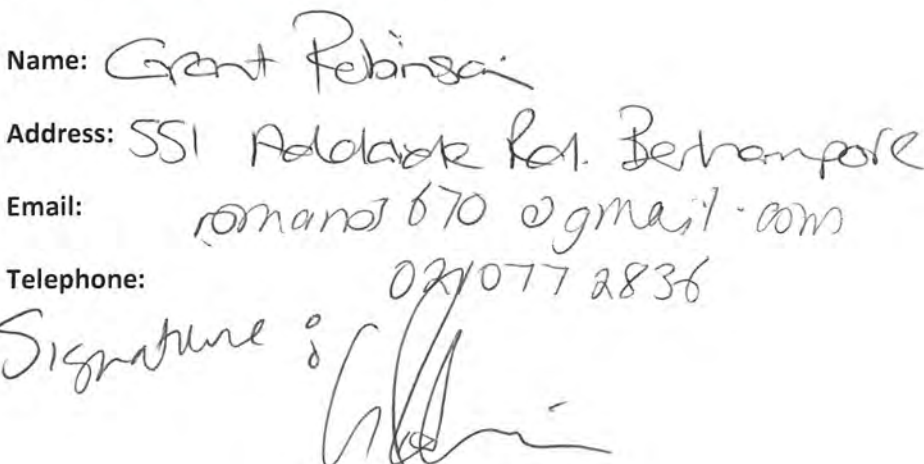 Name: Grant Robinson
Address: 551 Adelaide Rd. Berhampore
Email: romanos670@gmail.com
Telephone: 0210772836
Signature :